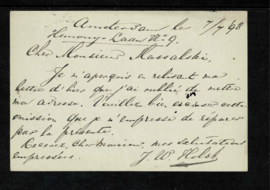 Amsterdam le 7/7 98
Hemony Laan No 9.
Cher Monsieur Massalski,
Je m'aperçois en relisant ma
lettre d'hier que j'ai oublié de mettre
mon adresse. Veuillez bien excuser cette
omission que je m'empresse de réparer
par la présente.
Recevez, cher Monsieur, mes salutations
empressées
J. W. Holst